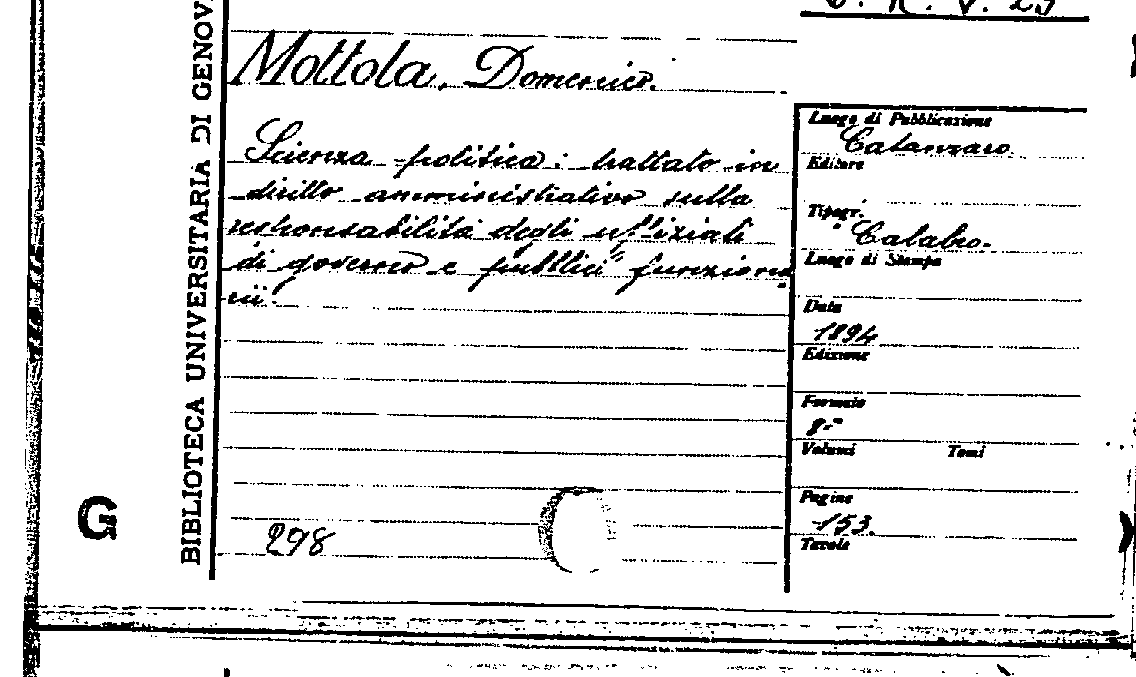 BIBLIOTECA UNIVERSITARIA DI GENOV
Mottola, Domenico.
Scienza politica: trattato in
diritto amministrativo sulla
responsabilità degli uffiziali
di governo e pubblici funziona
rii.
298
G
Luogo di Pubblicazione
Catanzaro
Editore
Tipogr.
Calabro.
Luogo di Stampa
Data
1894
Edizione
Formato
8°
Volumi Tomi
Pagine
153.
Tavole